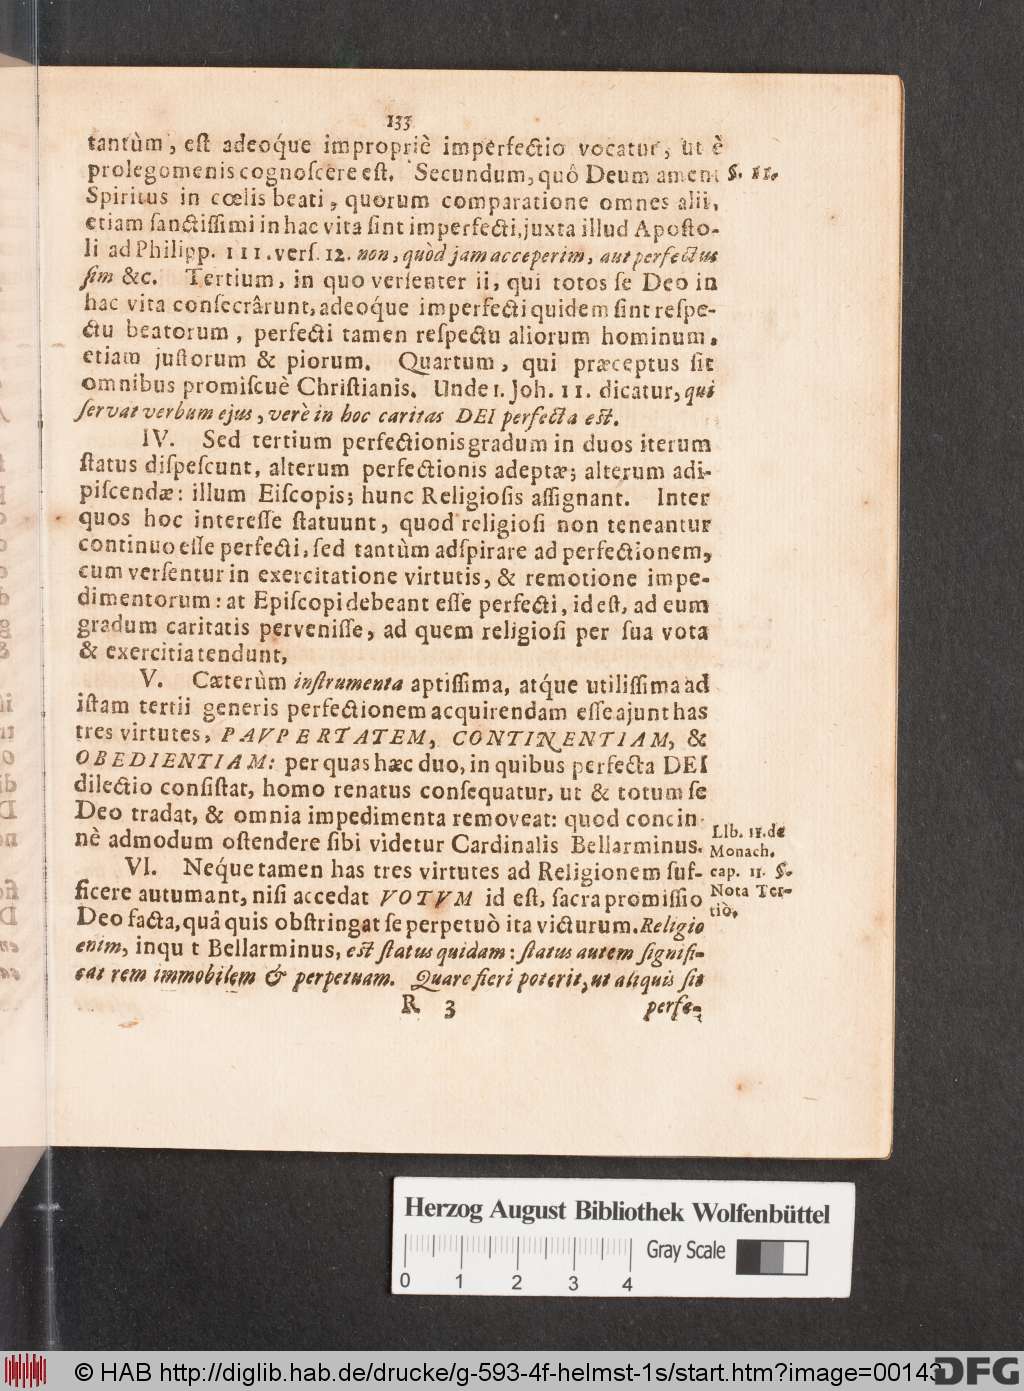 133
tantùm, est adeoq́ue impropriè imperfectio vocatur, ut è
prolegomenis cognoscere est. Secundum, quô Deum ament
§. 11.
Spiritus in cœlis beati, quorum comparatione omnes alii,
etiam sanctissimi in hac vita sint imperfecti, juxta illud Aposto-
li ad Philipp. 111. vers. 12. non, quòd jam acceperim, aut perfectus
sim &c. Tertium, in quo versenter ii, qui totos se Deo in
hac vita consecrârunt, adeoque imperfecti quidem sint respe-
ctu beatorum, perfecti tamen respectu aliorum hominum,
etiam justorum & piorum. Quartum, qui præceptus sit
omnibus promiscuè Christianis. Unde 1. Joh. 11. dicatur, qui
servat verbum ejus, verè in hoc caritas DEI perfecta est.
IV. Sed tertium perfectionis gradum in duos iterum
status dispescunt, alterum perfectionis adeptæ; alterum adi-
piscendæ: illum Eiscopis; hunc Religiosis assignant. Inter
quos hoc interesse statuunt, quod religiosi non teneantur
continuo esse perfecti, sed tantùm adspirare ad perfectionem,
cum versentur in exercitatione virtutis, & remotione impe-
dimentorum: at Episcopi debeant esse perfecti, id est, ad eum
gradum caritatis pervenisse, ad quem religiosi per sua vota
& exercitia tendunt,
V. Cæterùm instrumenta aptissima, atq́ue utilissima ad
istam tertii generis perfectionem acquirendam esse ajunt has
tres virtutes, PAVPERTATEM, CONTINENTIAM, &
OBEDIENTIAM: per quas hæc duo, in quibus perfecta DEI
dilectio consistat, homo renatus consequatur, ut & totum se
Deo tradat, & omnia impedimenta removeat: quod concin-
nè admodum ostendere sibi videtur Cardinalis Bellarminus.
Lib. 11. de
Monach.
cap. 11. §.
Nota Ter-
tiò.
VI. Neq́ue tamen has tres virtutes ad Religionem suf-
ficere autumant, nisi accedat VOTVM id est, sacra promissio
Deo facta, quâ quis obstringat se perpetuò ita victurum. Religio
enim, inqu t Bellarminus, est status quidam: status autem signifi-
cat rem immobilem & perpetuam. Quare fieri poterit, ut aliquis sit
R 3
perfe-
Herzog August Bibliothek Wolfenbüttel
Gray Scale
0 1 2 3 4
© HAB http://diglib.hab.de/drucke/g-593-4f-helmst-1s/start.htm?image=00143
DFG